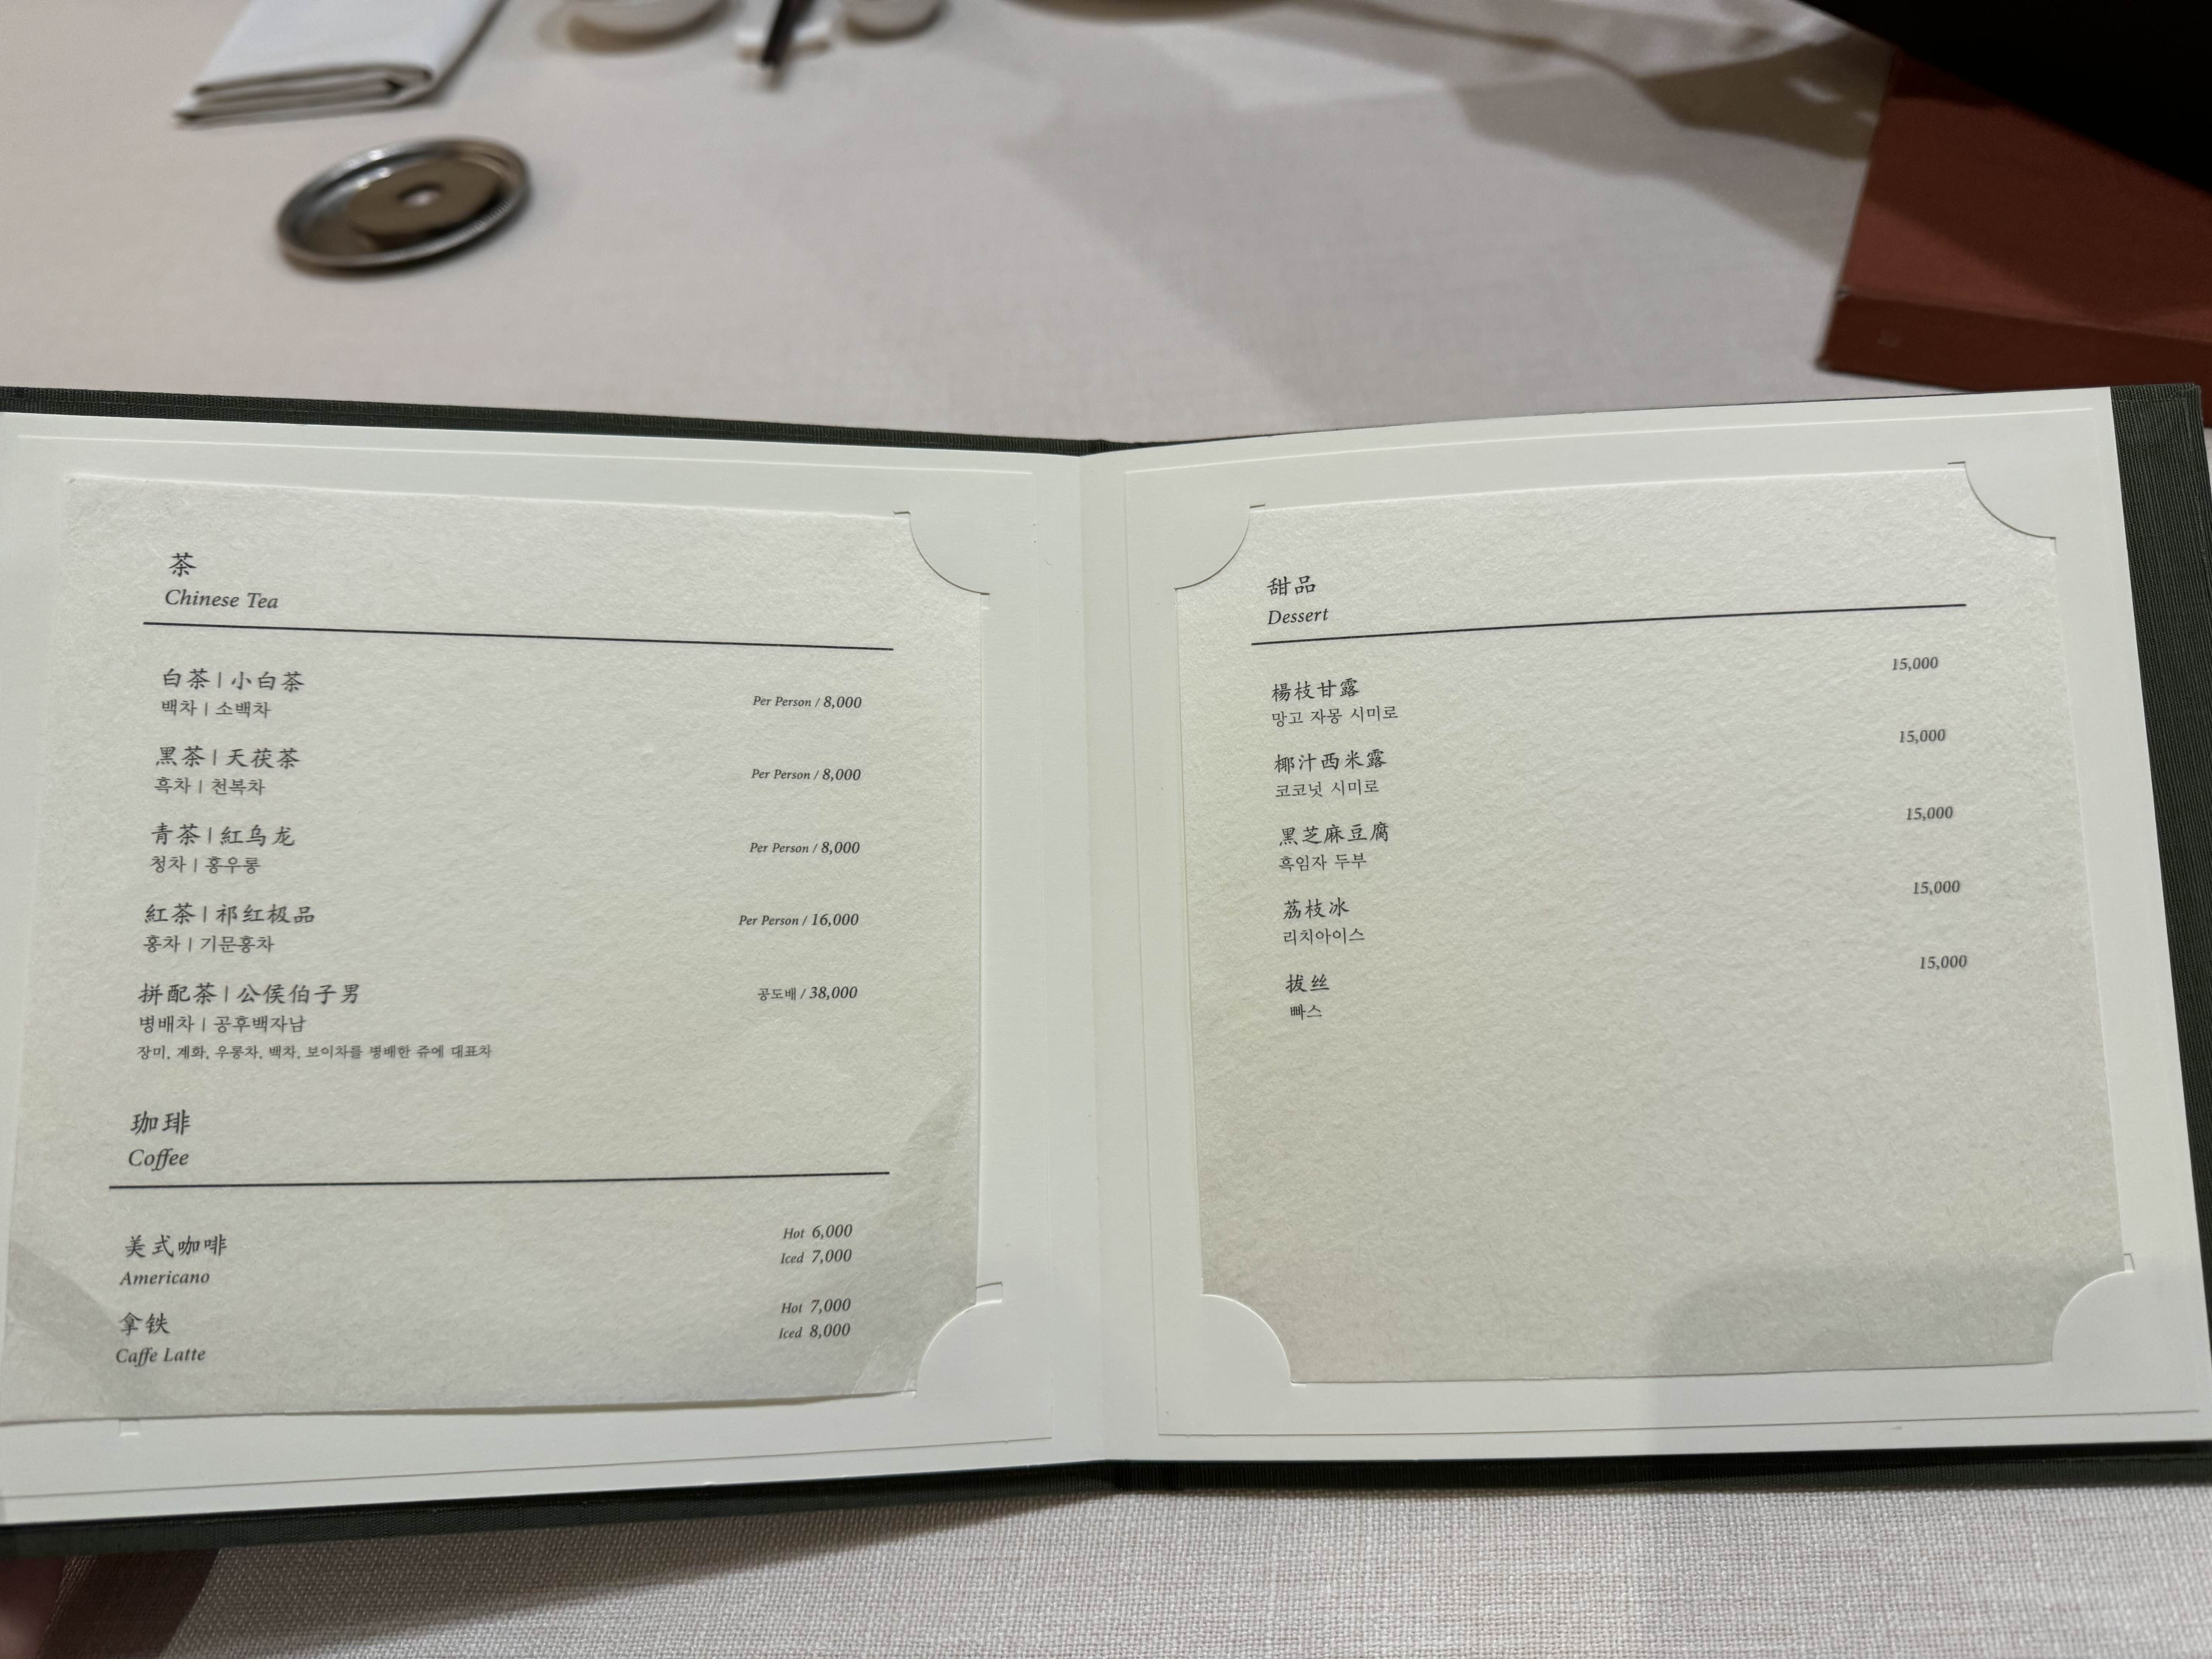 茶
Chinese Tea
白茶 | 小白茶
백차 | 소백차
Per Person / 8,000
黑茶 | 天茯茶
흑차 | 천복차
Per Person / 8,000
青茶 | 紅乌龙
청차 | 홍우롱
Per Person / 8,000
紅茶 | 祁红极品
홍차 | 기문홍차
Per Person / 16,000
拼配茶 | 公侯伯子男
병배차 | 공후백자남
장미, 계화, 우롱차, 백차, 보이차를 병배한 쥬에 대표차
공도배 / 38,000
珈琲
Coffee
美式咖啡
Americano
Hot 6,000
Iced 7,000
拿铁
Caffe Latte
Hot 7,000
Iced 8,000
甜品
Dessert
楊枝甘露
망고 자몽 시미로
15,000
椰汁西米露
코코넛 시미로
15,000
黑芝麻豆腐
흑임자 두부
15,000
荔枝冰
리치아이스
15,000
拔丝
빠스
15,000